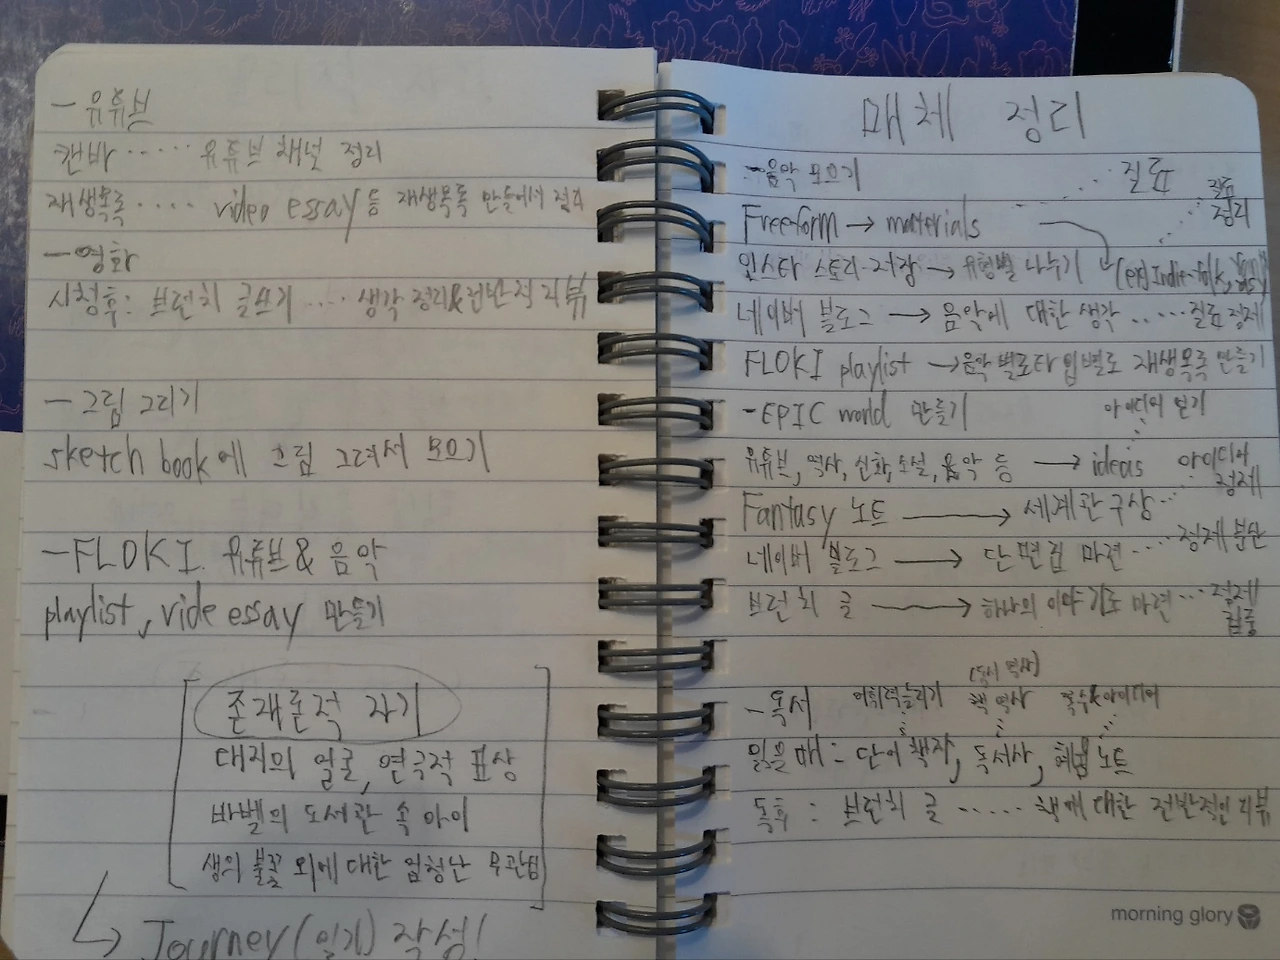 - 유튜브
캔바 ····· 유튜브 채널 정리
재생목록 ···· video essay 등 재생목록 만들어서 정리
- 영화
시청후: 브런치 글쓰기 ···· 생각 정리&전반적 리뷰
- 그림 그리기
sketch book에 그려서 모으기
- FLOKI 유튜브 & 음악
playlist, vide essay 만들기
존재론적 자기
대지의 얼굴, 연극적 표상
바벨의 도서관 속 아이
생의 불꽃 외에 대한 엄청난 무관심
Journey (일기) 작성!
매체 정리
- 음악 모으기 ··· 질료
Freeform → materials
질료 정리
인스타 스토리·저장 → 유형별 나누기 (ex) Indie-folk,
네이버 블로그 → 음악에 대한 생각 ····· 질료 정제
FLOKI playlist → 음악 별로 타입별로 재생목록 만들기
- EPIC world 만들기 아이디어 얻기
유튜브, 역사, 신화, 소설, 음악 등 → ideas 아이디어 정제
Fantasy 노트 → 세계관 구상
네이버 블로그 → 단편집 마련 ···· 정제 분산
브런치 글 → 하나의 이야기로 마련 ··· 정제
(독서 역사)
- 독서 어휘력 늘리기 책 역사 아이디어
읽을 때 : 단어 책자, 독서사, 노트
독후 : 브런치 글 ····· 책에 대한 전반적인 리뷰
morning glory